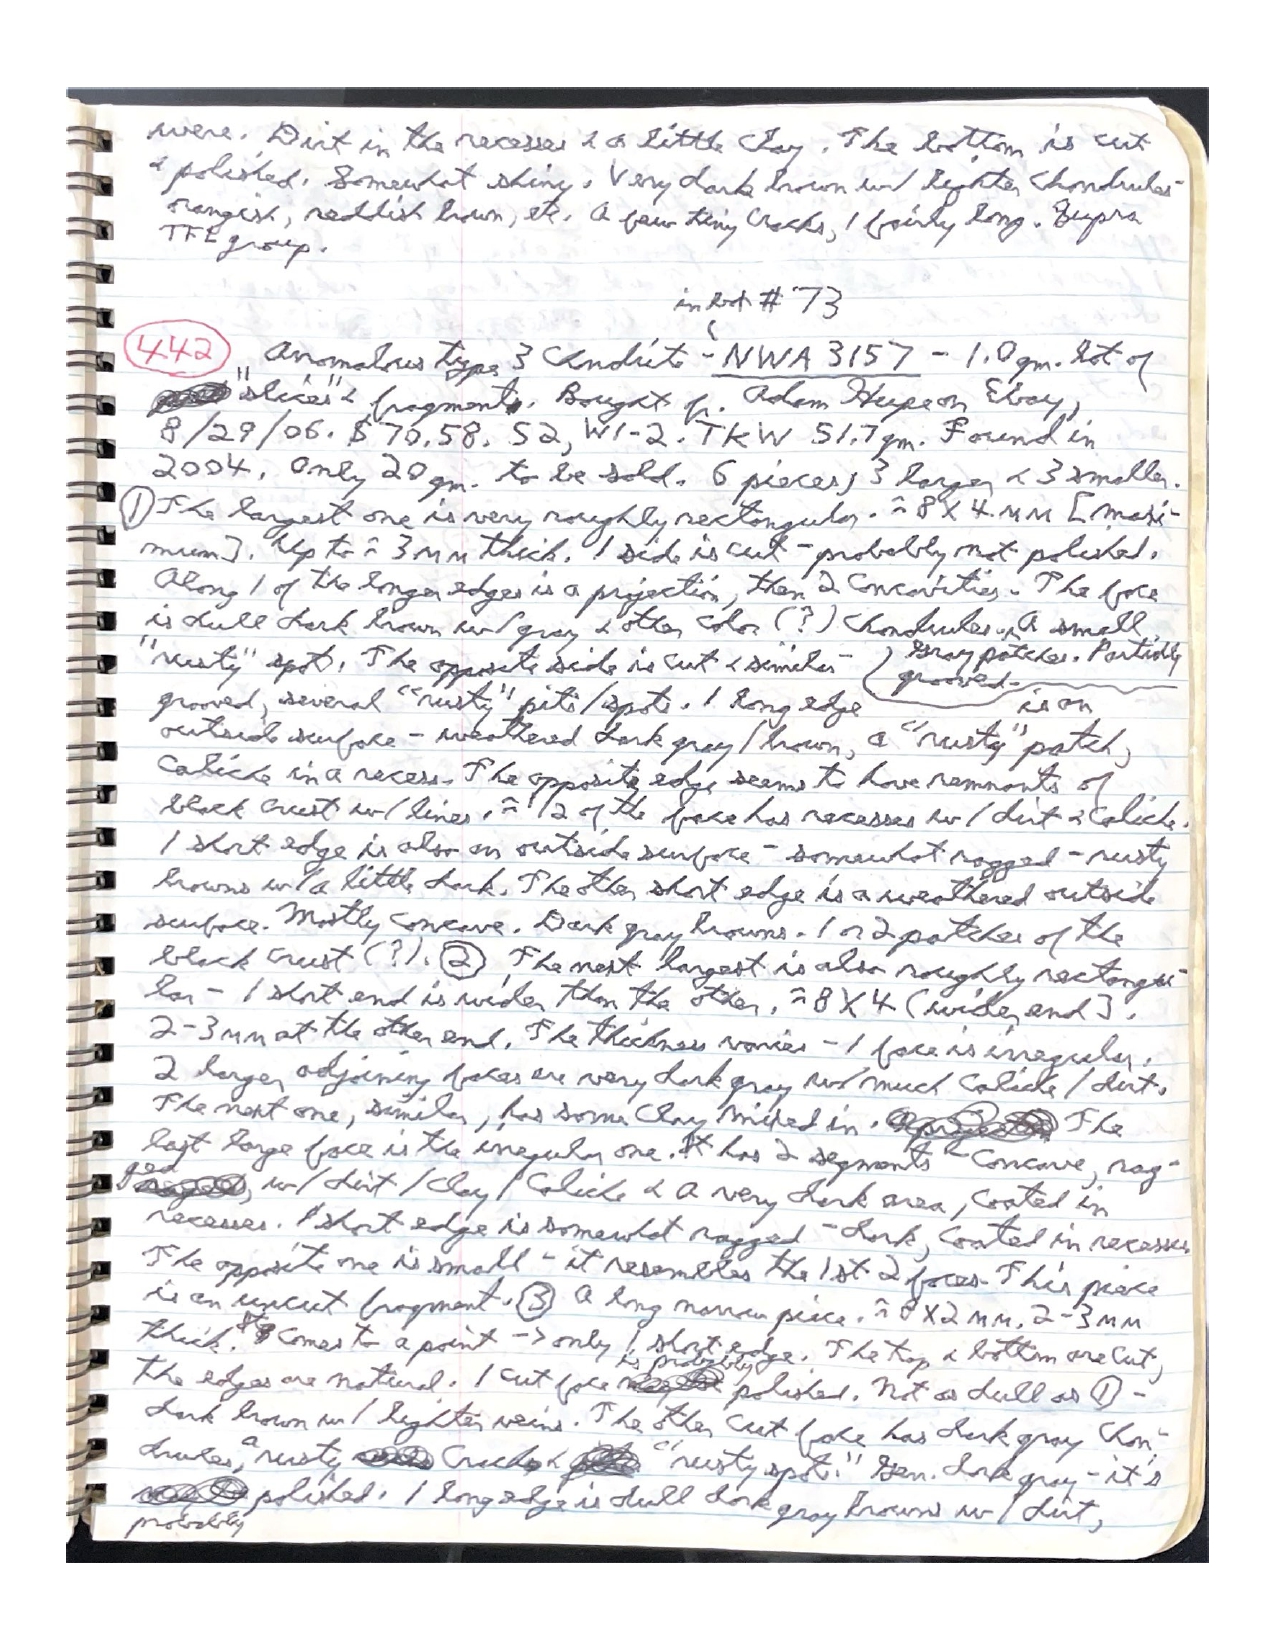 were. Dirt in the recesses & a little clay. The bottom is cut
& polished. Somewhat shiny. Very dark brown w/ lighter chondrules-
orangish, reddish brown, etc. A few tiny cracks, 1 fairly long.
TFL group.
in lot # 73
442 Anomalous type 3 Chondrite - NWA 3157 - 1.0 gm. lot of
"slices" & fragments. Bought fr. Adam Hupe on Ebay,
8/29/06. $70.58. S2, W1-2. TKW 51.7 gm. Found in
2004. Only 20 gm. to be sold. 6 pieces; 3 larger & 3 smaller.
① The largest one is very roughly rectangular. ≈ 8 X 4 mm [maxi-
mum]. Up to ≈ 3 mm thick. 1 side is cut - probably not polished.
Along 1 of the longer edges is a projection, then 2 concavities. The face
is dull dark brown w/ gray & other color (?) chondrules. A small
"rusty" spot. The opposite side is cut & similar -
Gray patches. Partially
grooved.
grooved, several "rusty" pits/spots. 1 long edge is an
outside surface - weathered dark gray/brown, a "rusty" patch,
caliche in a recess. The opposite edge seems to have remnants of
black crust w/ lines. ≈ 1/2 of the face has recesses w/ dirt & caliche.
1 short edge is also an outside surface - somewhat ragged - rusty
browns w/ a little dark. The other short edge is a weathered outside
surface. Mostly concave. Dark gray browns. 1 or 2 patches of the
black crust (?). ② The next largest is also roughly rectangu-
lar - 1 short end is wider than the other. ≈ 8 X 4 (wider end].
2-3 mm at the other end. The thickness varies - 1 face is irregular.
2 larger adjoining faces are very dark gray w/ much caliche/dirt.
The next one, similar, has some clay mixed in. The
last large face is the irregular one. It has 2 segments - concave, rag-
ged, w/ dirt/clay/caliche & a very dark area, coated in
recesses. 1 short edge is somewhat ragged - dark, coated in recesses
The opposite one is small - it resembles the 1st 2 faces. This piece
is an uncut fragment. ③ A long narrow piece. ≈ 8 X 2 mm. 2-3 mm
thick. It comes to a point -> only 1 short edge. The top & bottom are cut,
the edges are natural. 1 cut face is probably polished. Not as dull as ① -
dark brown w/ lighter veins. The other cut face has dark gray chon-
drules, a rusty crack, & "rusty spot." Gen. dark gray - it's
probably polished. 1 long edge is dull dark gray browns w/ dirt,